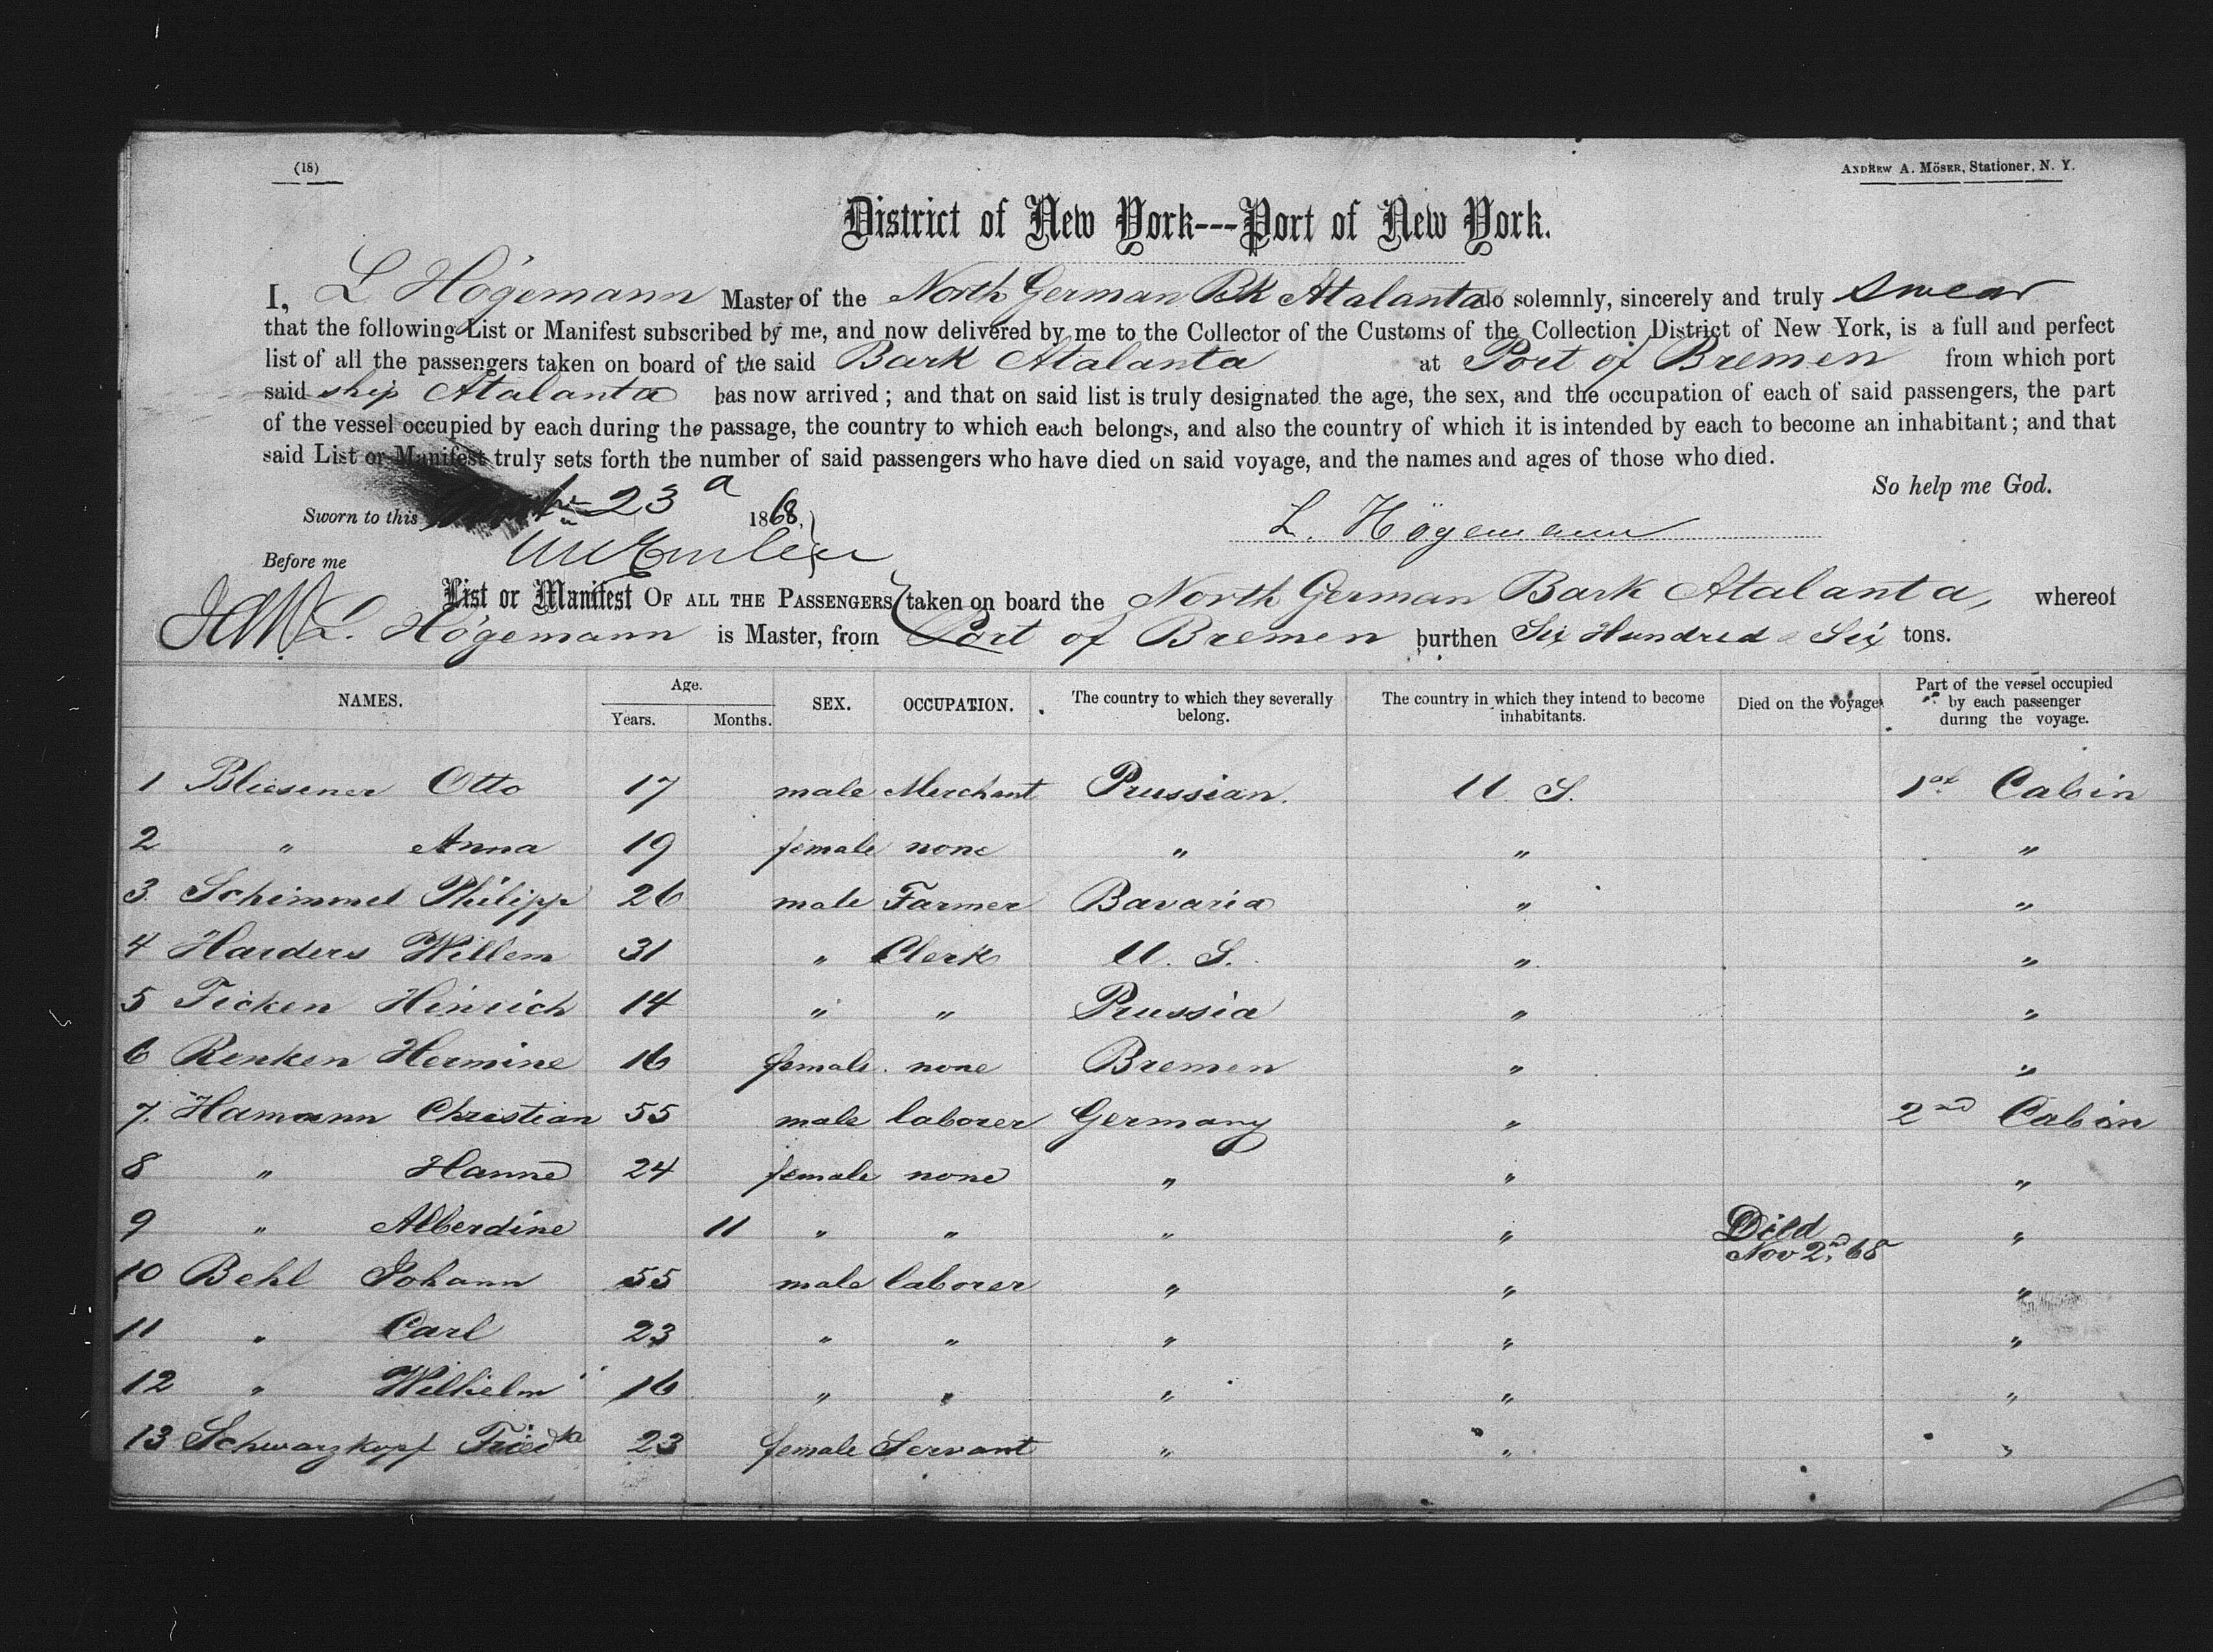 (18)
ANDREW A. MÖSER, Stationer, N. Y.
District of New York---Port of New York.
I, L Högemann Master of the North German Bk Atalanta do solemnly, sincerely and truly swear
that the following List or Manifest subscribed by me, and now delivered by me to the Collector of the Customs of the Collection District of New York, is a full and perfect
list of all the passengers taken on board of the said Bark Atalanta at Port of Bremen from which port
said ship Atalanta has now arrived; and that on said list is truly designated the age, the sex, and the occupation of each of said passengers, the part
of the vessel occupied by each during the passage, the country to which each belongs, and also the country of which it is intended by each to become an inhabitant; and that
said List or Manifest truly sets forth the number of said passengers who have died on said voyage, and the names and ages of those who died.
So help me God.
Sworn to this 23 1868.
L. Högemann
Before me
List or Manifest OF ALL THE PASSENGERS taken on board the North German Bark Atalanta, whereof
L. Högemann is Master, from Port of Bremen burthen Six Hundred & Six tons.
NAMES. Age. Years. Months. SEX. OCCUPATION. The country to which they severally belong. The country in which they intend to become inhabitants. Died on the voyage. Part of the vessel occupied by each passenger during the voyage.
1 Bliesener Otto 17 male Merchant Prussian. U. S. 1st Cabin
2 " Anna 19 female none " " "
3. Schimmel Philipp 26 male Farmer Bavaria " "
4 Harders Willem 31 " Clerk U. S. " "
5 Ficken Hinrich 14 " " Prussia " "
6 Renken Hermine 16 female. none Bremen " "
7. Hamann Christian 55 male laborer Germany " 2nd Cabin
8 " Hanne 24 female none " " "
9 " Alberdine 11 " " " " Died Nov 2nd, 68 "
10 Behl Johann 55 male laborer " " "
11 " Carl 23 " " " " "
12 " Wilhelm 16 " " " " "
13 Schwarzkopf Friedka 23 female Servant " " "